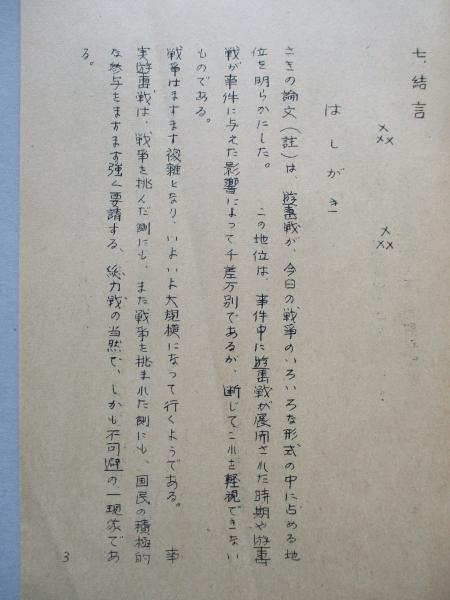 七、結言
×××　×××
はしがき
さきの論文(註)は、遊撃戦が、今日の戦争のいろいろな形式の中に占める地
位を明らかにした。　この地位は、事件中に遊撃戦が展開された時期や遊撃
戦が事件に与えた影響によって千差万別であるが、断じてこれを軽視できない
ものである。
戦争はますます複雑となり、いよいよ大規模になって行くようである。　事
実遊撃戦は、戦争を挑んだ側にも、また戦争を挑まれた側にも、国民の積極的
な参与をますます強く要請する、総力戦の当然で、しかも不可避の一現象であ
る。
3